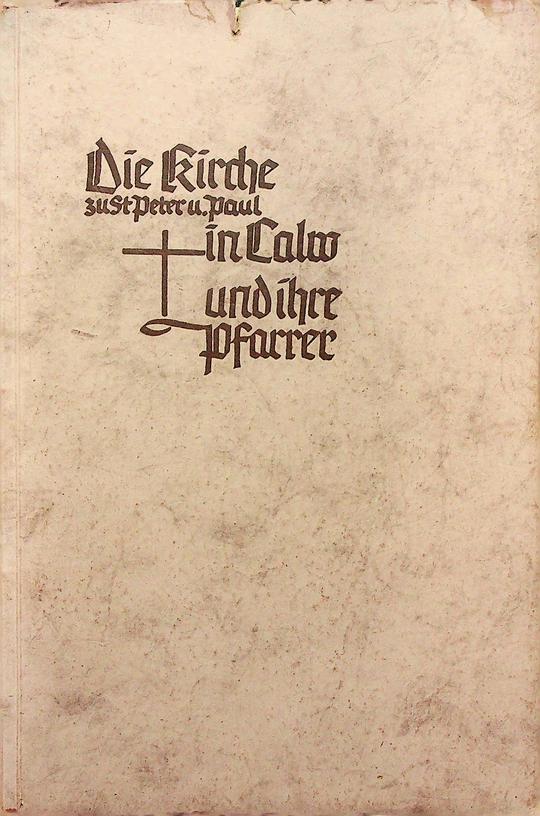 Die Kirche
zu St Peter u. Paul
in Calw
und ihre
Pfarrer